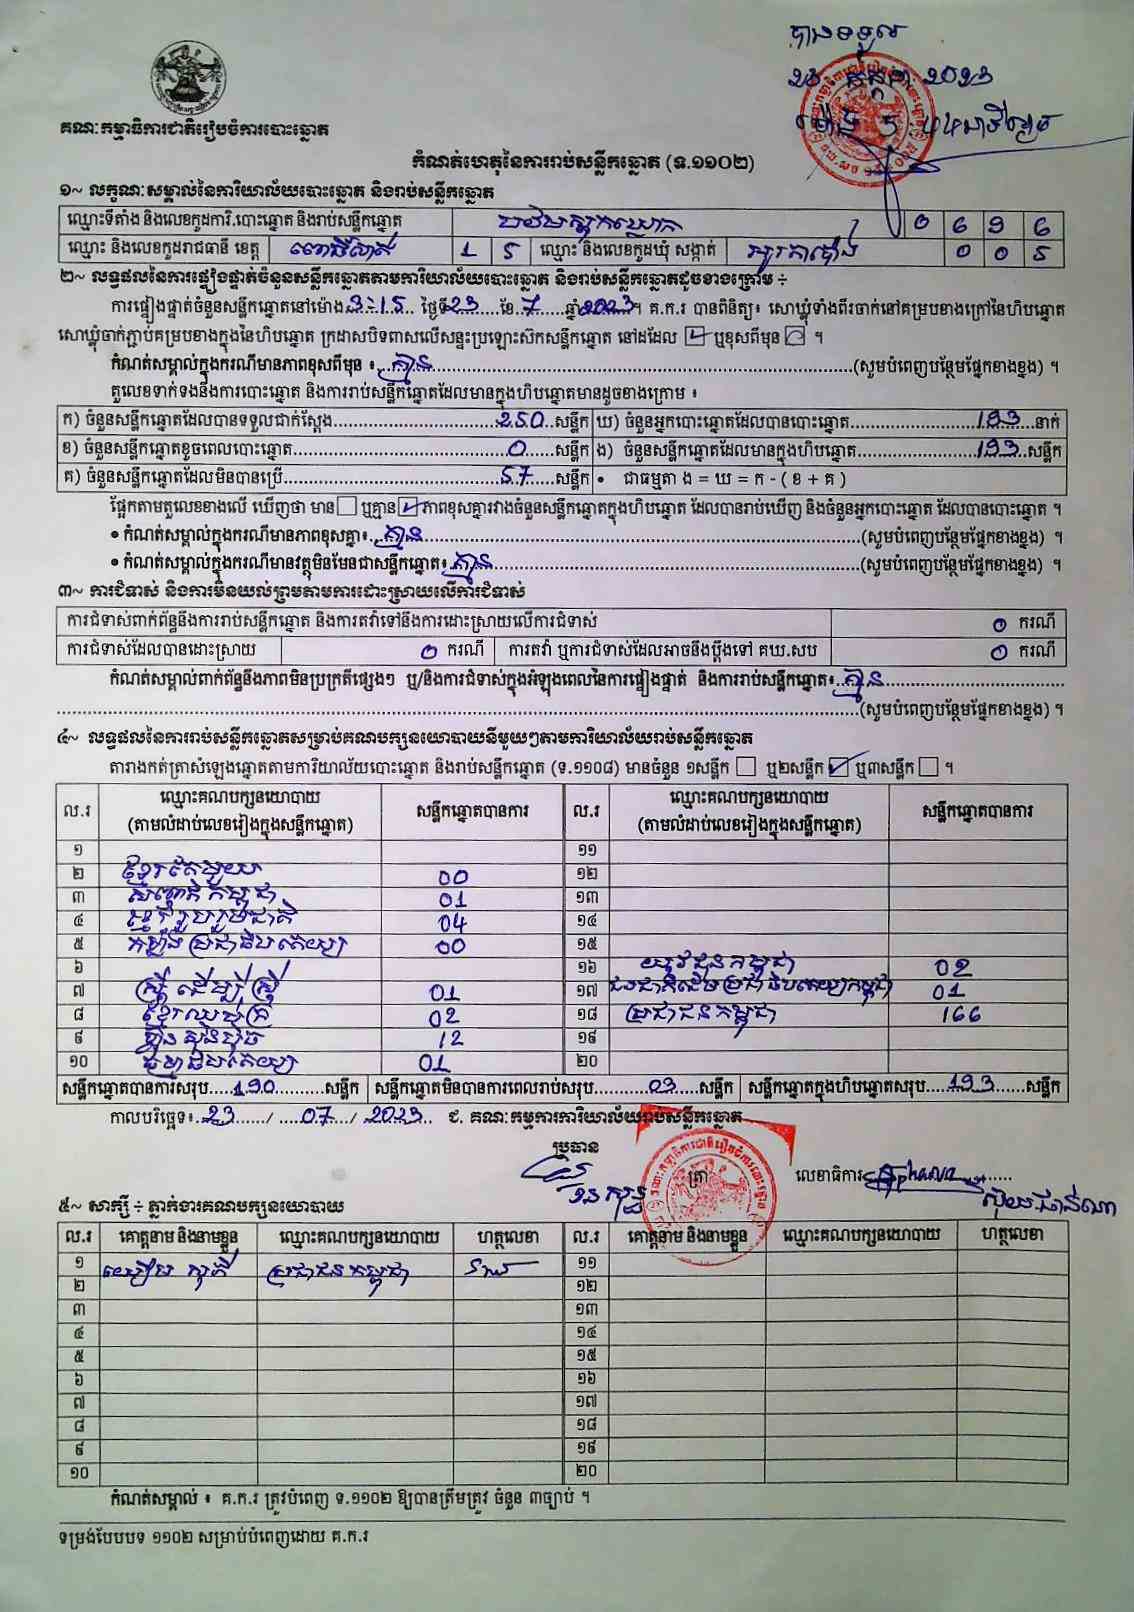 បានទទួល
23 កក្កដា 2023
ម៉ោង 5
គណៈកម្មាធិការជាតិរៀបចំការបោះឆ្នោត
កំណត់ហេតុនៃការរាប់សន្លឹកឆ្នោត (ទ.១១០២)
១~ លក្ខណៈសម្គាល់នៃការិយាល័យបោះឆ្នោត និងរាប់សន្លឹកឆ្នោត
ឈ្មោះទីតាំង និងលេខកូដការិ.បោះឆ្នោត និងរាប់សន្លឹកឆ្នោត 0 6 9 6
ឈ្មោះ និងលេខកូដរាជធានី ខេត្ត ពោធិ៍សាត់ 1 5 ឈ្មោះ និងលេខកូដឃុំ សង្កាត់ 0 0 5
២~ លទ្ធផលនៃការផ្ទៀងផ្ទាត់ចំនួនសន្លឹកឆ្នោតតាមការិយាល័យបោះឆ្នោត និងរាប់សន្លឹកឆ្នោតដូចខាងក្រោម ÷
ការផ្ទៀងផ្ទាត់ចំនួនសន្លឹកឆ្នោតនៅម៉ោង 3-15 ថ្ងៃទី 23 ខែ 7 ឆ្នាំ 2023 ។ គ.ក.រ បានពិនិត្យ៖ សោឃ្លុំទាំងពីរចាក់នៅគម្របខាងក្រៅនៃហិបឆ្នោត
សោឃ្លុំចាក់ភ្ជាប់គម្របខាងក្នុងនៃហិបឆ្នោត ក្រដាសបិទពាសលើសន្ទះប្រឡោះស៊កសន្លឹកឆ្នោត នៅដដែល ☑ ឬខុសពីមុន ☐ ។
កំណត់សម្គាល់ក្នុងករណីមានភាពខុសពីមុន ៖ គ្មាន (សូមបំពេញបន្ថែមផ្នែកខាងខ្នង) ។
តួលេខទាក់ទងនឹងការបោះឆ្នោត និងការរាប់សន្លឹកឆ្នោតដែលមានក្នុងហិបឆ្នោតមានដូចខាងក្រោម ៖
ក) ចំនួនសន្លឹកឆ្នោតដែលបានទទួលជាក់ស្តែង 250 សន្លឹក ឃ) ចំនួនអ្នកបោះឆ្នោតដែលបានបោះឆ្នោត 193 នាក់
ខ) ចំនួនសន្លឹកឆ្នោតខូចពេលបោះឆ្នោត 0 សន្លឹក ង) ចំនួនសន្លឹកឆ្នោតដែលមានក្នុងហិបឆ្នោត 193 សន្លឹក
គ) ចំនួនសន្លឹកឆ្នោតដែលមិនបានប្រើ 57 សន្លឹក • ជាធម្មតា ង = ឃ = ក - ( ខ + គ )
ផ្អែកតាមតួលេខខាងលើ ឃើញថា មាន ☐ ឬគ្មាន ☑ ភាពខុសគ្នារវាងចំនួនសន្លឹកឆ្នោតក្នុងហិបឆ្នោត ដែលបានរាប់ឃើញ និងចំនួនអ្នកបោះឆ្នោត ដែលបានបោះឆ្នោត ។
• កំណត់សម្គាល់ក្នុងករណីមានភាពខុសគ្នា៖ គ្មាន (សូមបំពេញបន្ថែមផ្នែកខាងខ្នង) ។
• កំណត់សម្គាល់ក្នុងករណីមានវត្ថុមិនមែនជាសន្លឹកឆ្នោត៖ គ្មាន (សូមបំពេញបន្ថែមផ្នែកខាងខ្នង) ។
៣~ ការជំទាស់ និងការមិនយល់ព្រមតាមការដោះស្រាយលើការជំទាស់
ការជំទាស់ពាក់ព័ន្ធនឹងការរាប់សន្លឹកឆ្នោត និងការតវ៉ាទៅនឹងការដោះស្រាយលើការជំទាស់ 0 ករណី
ការជំទាស់ដែលបានដោះស្រាយ 0 ករណី ការតវ៉ា ឬការជំទាស់ដែលអាចនឹងប្តឹងទៅ គឃ.សប 0 ករណី
កំណត់សម្គាល់ពាក់ព័ន្ធនឹងភាពមិនប្រក្រតីផ្សេងៗ ឬ/និងការជំទាស់ក្នុងអំឡុងពេលនៃការផ្ទៀងផ្ទាត់ និងការរាប់សន្លឹកឆ្នោត៖ គ្មាន
(សូមបំពេញបន្ថែមផ្នែកខាងខ្នង) ។
៤~ លទ្ធផលនៃការរាប់សន្លឹកឆ្នោតសម្រាប់គណបក្សនយោបាយនីមួយៗតាមការិយាល័យរាប់សន្លឹកឆ្នោត
តារាងកត់ត្រាសំឡេងឆ្នោតតាមការិយាល័យបោះឆ្នោត និងរាប់សន្លឹកឆ្នោត (ទ.១១០៨) មានចំនួន ១សន្លឹក ☐ ឬ២សន្លឹក ☑ ឬ៣សន្លឹក ☐ ។
ល.រ ឈ្មោះគណបក្សនយោបាយ សន្លឹកឆ្នោតបានការ ល.រ ឈ្មោះគណបក្សនយោបាយ សន្លឹកឆ្នោតបានការ
(តាមលំដាប់លេខរៀងក្នុងសន្លឹកឆ្នោត) (តាមលំដាប់លេខរៀងក្នុងសន្លឹកឆ្នោត)
១ ១១
២ ខ្មែរតែមួយ 00 ១២
៣ កម្ពុជា 01 ១៣
៤ ខ្មែររួបរួមជាតិ 04 ១៤
៥ កម្លាំងប្រជាធិបតេយ្យ 00 ១៥
៦ ១៦ យុវជនកម្ពុជា 02
៧ ស្ត្រីដើម្បីស្ត្រី 01 ១៧ ជនជាតិដើមប្រជាធិបតេយ្យកម្ពុជា 01
៨ ខ្មែរឈប់ក្រ 02 ១៨ ប្រជាជនកម្ពុជា 166
៩ ហ្វ៊ុនស៊ិនប៉ិច 12 ១៩
១០ ប្រជាធិបតេយ្យ 01 ២០
សន្លឹកឆ្នោតបានការសរុប 190 សន្លឹក សន្លឹកឆ្នោតមិនបានការពេលរាប់សរុប 03 សន្លឹក សន្លឹកឆ្នោតក្នុងហិបឆ្នោតសរុប 193 សន្លឹក
កាលបរិច្ឆេទ៖ 23 / 07 / 2023 ជ. គណៈកម្មការការិយាល័យរាប់សន្លឹកឆ្នោត
ប្រធាន
ត្រា លេខាធិការ
៥~ សាក្សី ÷ ភ្នាក់ងារគណបក្សនយោបាយ
ល.រ គោត្តនាម និងនាមខ្លួន ឈ្មោះគណបក្សនយោបាយ ហត្ថលេខា ល.រ គោត្តនាម និងនាមខ្លួន ឈ្មោះគណបក្សនយោបាយ ហត្ថលេខា
១ ប្រជាជនកម្ពុជា ១១
២ ១២
៣ ១៣
៤ ១៤
៥ ១៥
៦ ១៦
៧ ១៧
៨ ១៨
៩ ១៩
១០ ២០
កំណត់សម្គាល់ ៖ គ.ក.រ ត្រូវបំពេញ ទ.១១០២ ឱ្យបានត្រឹមត្រូវ ចំនួន ៣ច្បាប់ ។
ទម្រង់បែបបទ ១១០២ សម្រាប់បំពេញដោយ គ.ក.រ